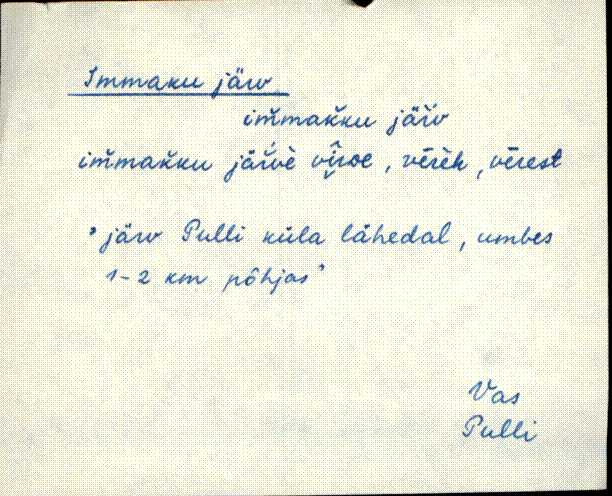 Immaku järv
im̆makku jär̆v
im̆makku jär̆vè vī̮roe, vērèh, vērest
" järv Pulli küla lähedal, umbes
1-2 km põhjas"
Vas
Pulli